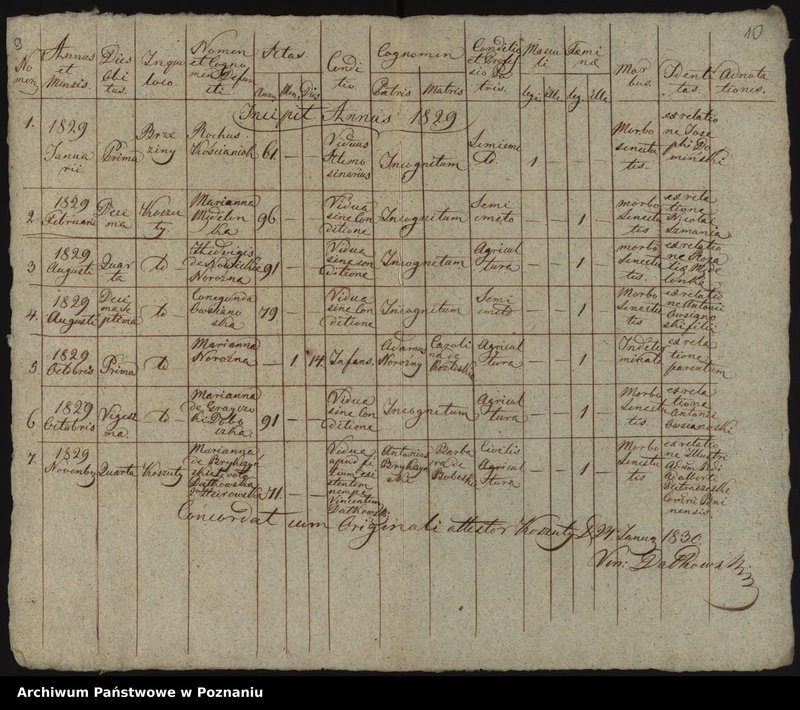 9
10
No mor:
Annus et Mensis.
Dies Obitus.
In quo loco.
Nomen et Cognomen Defuncti.
Aetas
Anni Men: Dies
Conditio
Cognomen
Patris Matris
Conditio et Professio Patris.
Masculi
legi: ille:
Feminae
leg: ille
Morbus.
Identitas.
Adnotationes.
Incipit Annus 1829
1. 1829 Januarii Prima Brzeziny Rochus Kościaniak 61. — — Viduus Elemosinarius Incognitum Semicmeto. 1 — Morbo Senectutis. ex relatione Josephi
2. 1829 Februarii Decima Koszuty Marianna 96. — — Vidua sine Conditione Incognitum Semicmeto — — 1 — morbo Senectutis ex relatione Nicolai Szmania
3 1829 Augusti Quarta to Hedvigis Norozna 91 — — Vidua sine Conditione Incognitum Agricultura — — 1 — morbo Senectutis. ex relatione
4. 1829 Augusti Decima Septema to Conegunda Owsianoska 79. — — Vidua sine Conditione Incognitum Semicmeto — — 1 — Morbo Senectutis ex relatione Antonii Owsianoski filii
5. 1829 Octobris Prima to Marianna Norozna — 1 14. Infans. Adamus Norozny Carolina de Agricultura — — 1 — ex relatione parentum
6 1829 Octobris Vigesima. to Marianna de 91 — — Vidua sine Conditione Incognitum Agricultura — — 1 — Morbo Senectutis. ex relatione Antonii Owsianowski
7. 1829 Novembr Quarta Koszuty Marianna de Datkowska 71 — — Vidua apud filium existentem nempe Vincentium Datkowski Antonius Barbara de Civilis Agricultura — — 1 — Morbo Senectutis ex relatione Illustri Adalberti
Concordat cum Originali attestor Koszuty D 24. Janua 1830
Vin: Datkowski
Archiwum Państwowe w Poznaniu